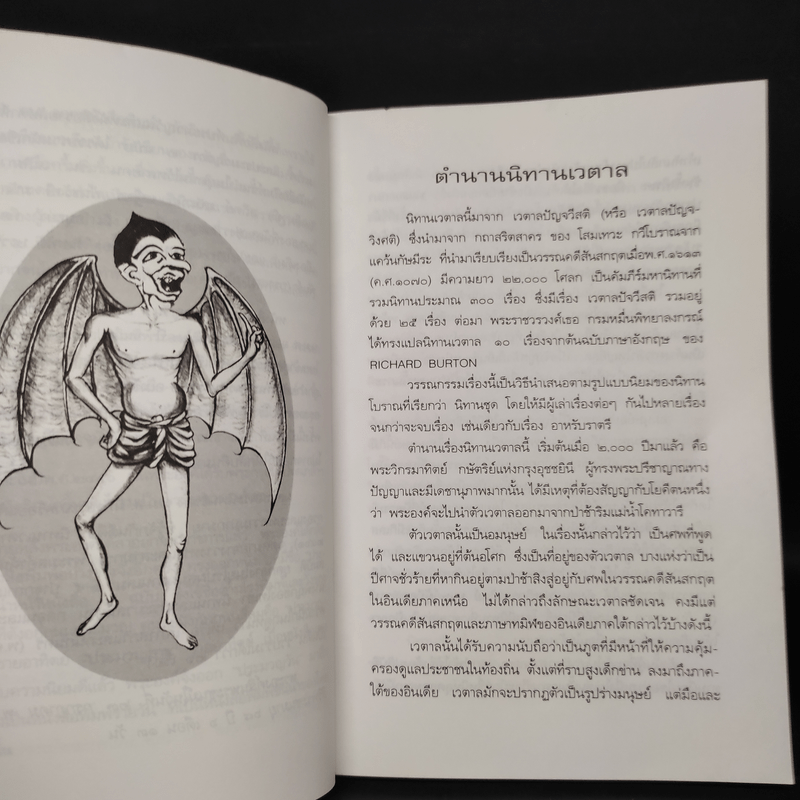 ตำนานนิทานเวตาล
นิทานเวตาลนี้มาจาก เวตาลปัญจวีสติ (หรือ เวตาลปัญจ-
วิงศติ) ซึ่งนำมาจาก กถาสริตสาคร ของ โสมเทวะ กวีโบราณจาก
แคว้นกัษมีระ ที่นำมาเรียบเรียงเป็นวรรณคดีสันสกฤตเมื่อพ.ศ.๑๖๑๓
(ค.ศ.๑๐๗๐) มีความยาว ๒๒,๐๐๐ โศลก เป็นคัมภีร์มหานิทานที่
รวมนิทานประมาณ ๓๐๐ เรื่อง ซึ่งมีเรื่อง เวตาลปัจวีสติ รวมอยู่
ด้วย ๒๕ เรื่อง ต่อมา พระราชวรวงศ์เธอ กรมหมื่นพิทยาลงกรณ์
ได้ทรงแปลนิทานเวตาล ๑๐ เรื่องจากต้นฉบับภาษาอังกฤษ ของ
RICHARD BURTON
วรรณกรรมเรื่องนี้เป็นวิธีนำเสนอตามรูปแบบนิยมของนิทาน
โบราณที่เรียกว่า นิทานชุด โดยให้มีผู้เล่าเรื่องต่อๆ กันไปหลายเรื่อง
จนกว่าจะจบเรื่อง เช่นเดียวกับเรื่อง อาหรับราตรี
ตำนานเรื่องนิทานเวตาลนี้ เริ่มต้นเมื่อ ๒,๐๐๐ ปีมาแล้ว คือ
พระวิกรมาทิตย์ กษัตริย์แห่งกรุงอุชชยินี ผู้ทรงพระปรีชาญาณทาง
ปัญญาและมีเดชานุภาพมากนั้น ได้มีเหตุที่ต้องสัญญากับโยคีตนหนึ่ง
ว่า พระองค์จะไปนำตัวเวตาลออกมาจากป่าช้าริมแม่น้ำโคทาวารี
ตัวเวตาลนั้นเป็นอมนุษย์ ในเรื่องนั้นกล่าวไว้ว่า เป็นศพที่พูด
ได้ และแขวนอยู่ที่ต้นอโศก ซึ่งเป็นที่อยู่ของตัวเวตาล บางแห่งว่าเป็น
ปีศาจชั่วร้ายที่หากินอยู่ตามป่าช้าสิงสู่อยู่กับศพในวรรณคดีสันสกฤต
ในอินเดียภาคเหนือ ไม่ได้กล่าวถึงลักษณะเวตาลชัดเจน คงมีแต่
วรรณคดีสันสกฤตและภาษาทมิฬของอินเดียภาคใต้กล่าวไว้บ้างดังนี้
เวตาลนั้นได้รับความนับถือว่าเป็นภูตที่มีหน้าที่ให้ความคุ้ม-
ครองดูแลประชาชนในท้องถิ่น ตั้งแต่ที่ราบสูงเด็กข่าน ลงมาถึงภาค-
ใต้ของอินเดีย เวตาลมักจะปรากฏตัวเป็นรูปร่างมนุษย์ แต่มือและ